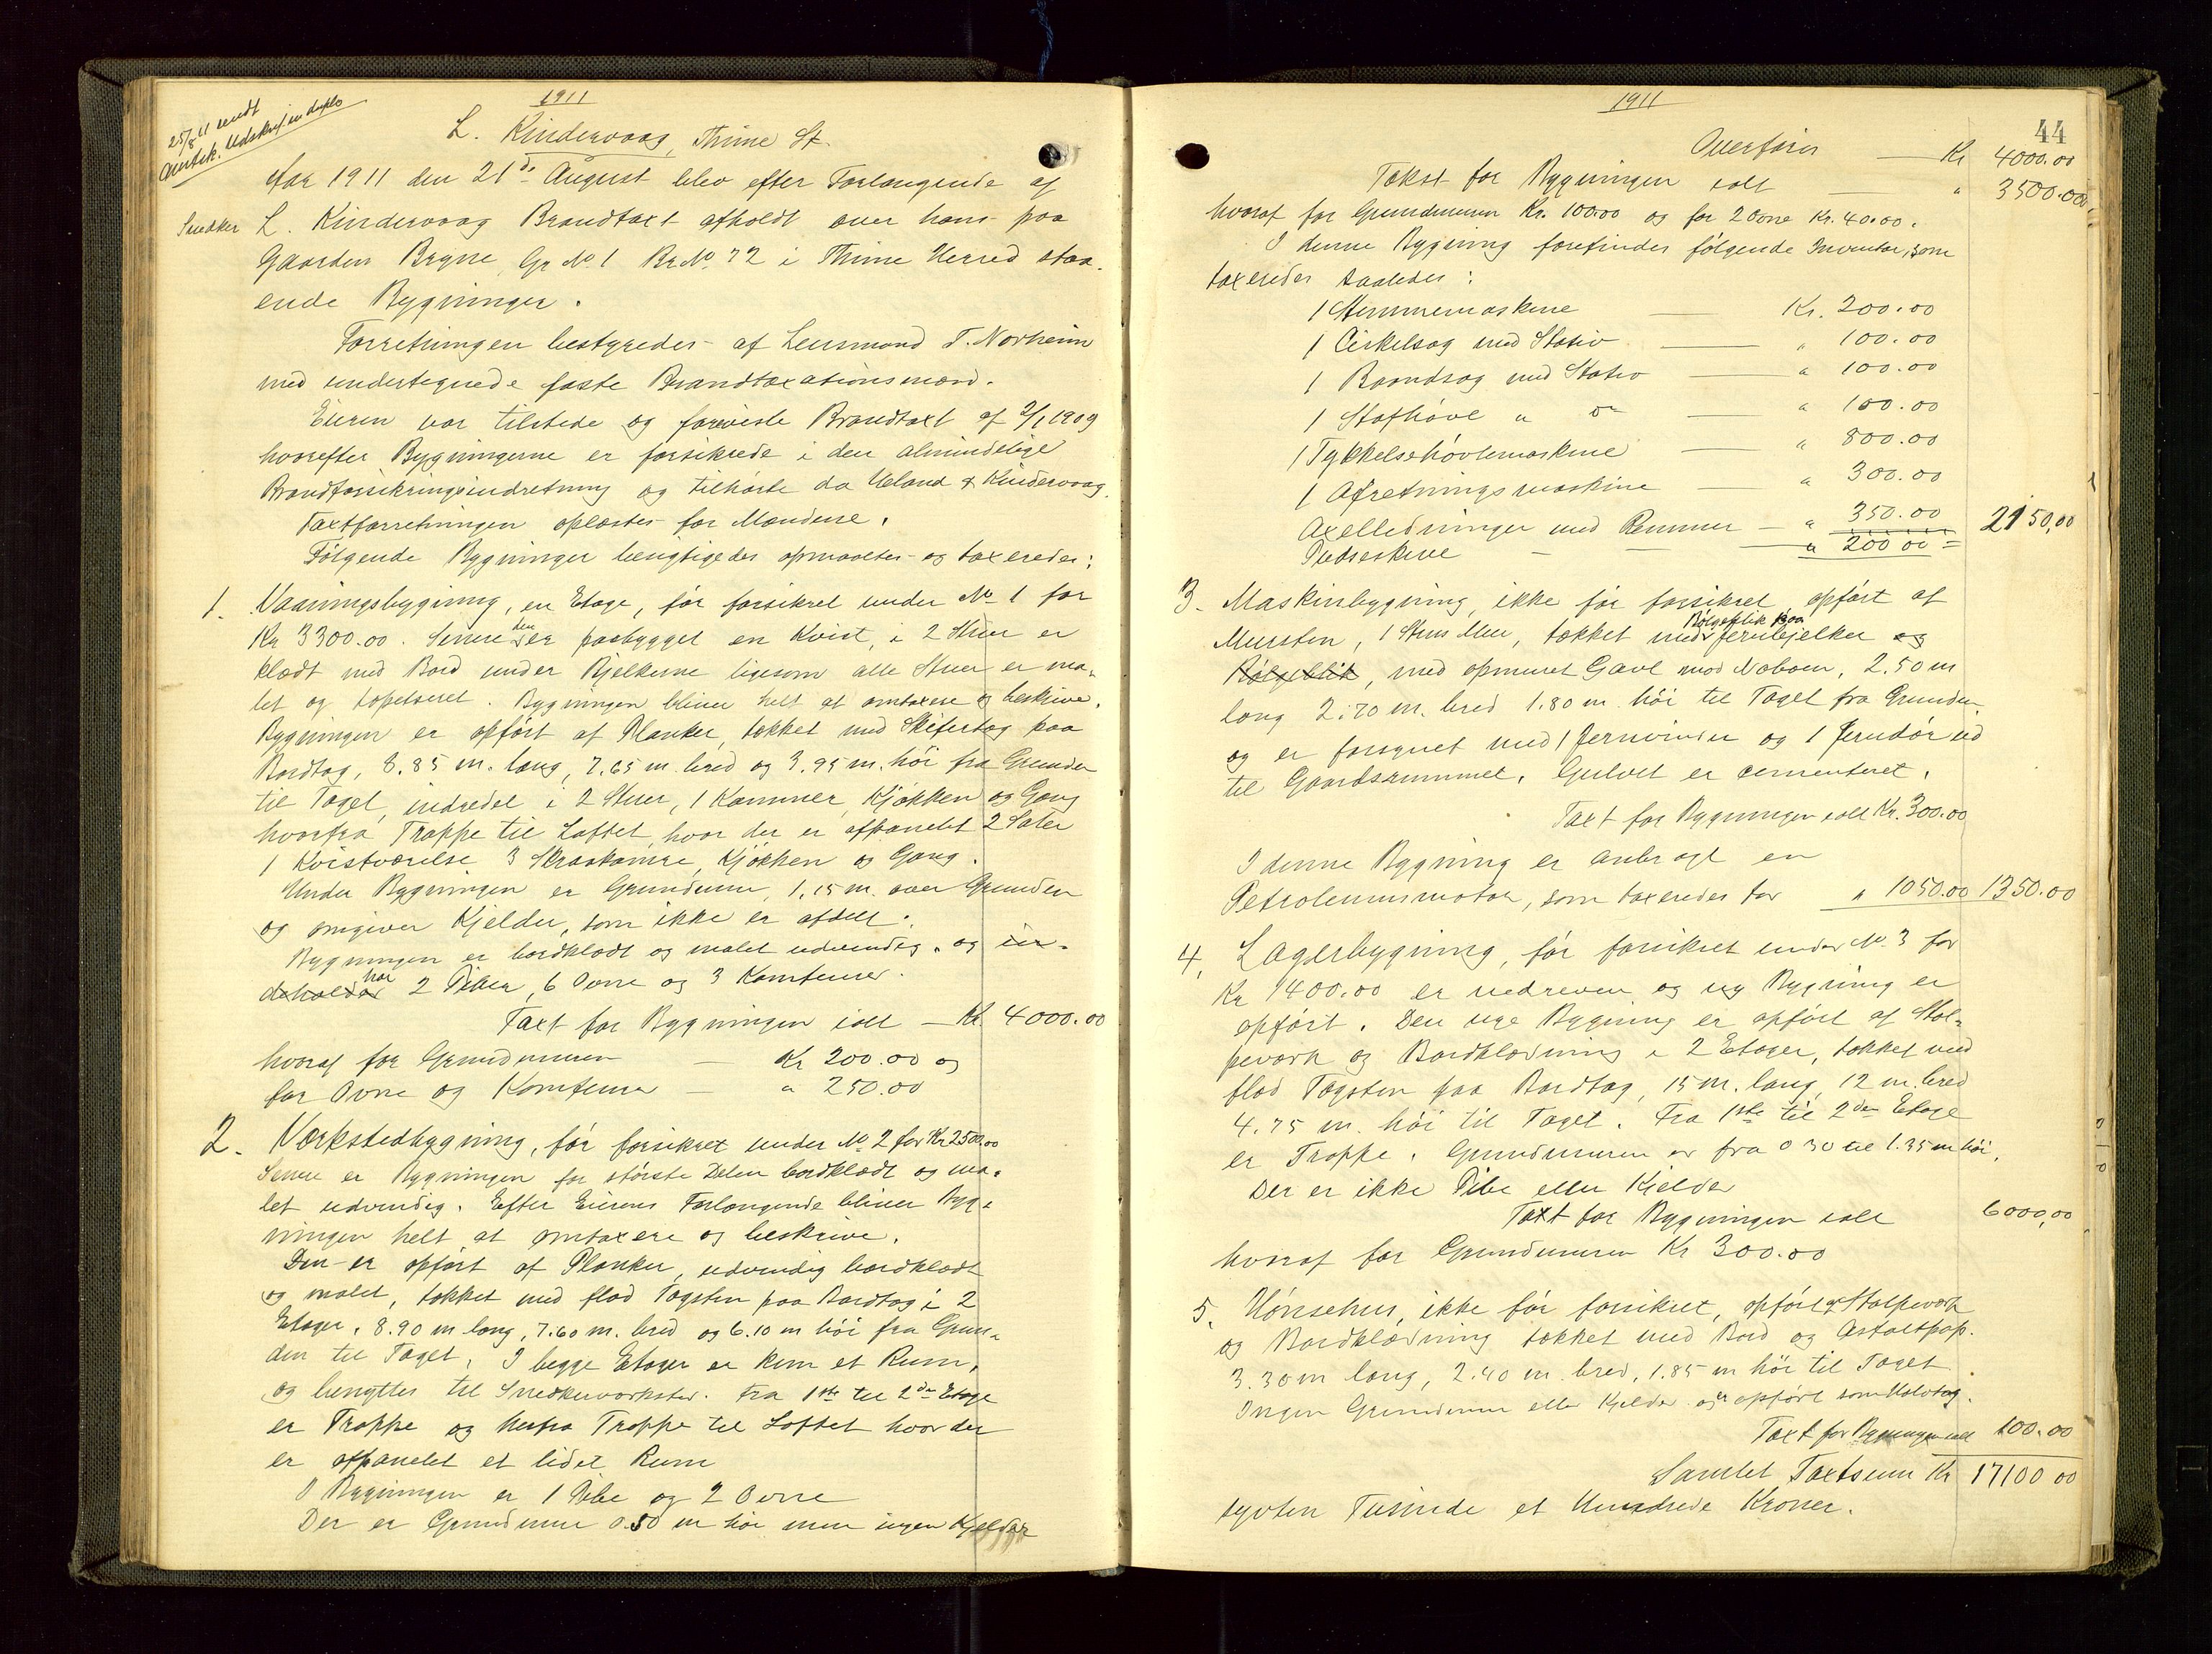 1911
25/8 11 sendt
Amtsk. Udskrift in duplo
L. Kindervaag, Thime St.
Aar 1911 den 21de August blev efter Forlangende af
Snedker L. Kindervaag Brandtaxt afholdt over hans paa
Gaarden Bryne, Gr No. 1 Br No. 72 i Thime Herred staa-
ende Bygninger.
Forretningen bestyredes af Lensmand T. Norheim
med undertegnede faste Brandtaxationsmænd.
Eieren var tilstede og foreviste Brandtaxt af 2/1 1909
hvorefter Bygningerne er forsikrede i den almindelige
Brandforsikringsindretning og tilhørte da Ueland & Kindervaag.
Taxtforretningen oplæstes for Mændene.
Følgende Bygninger besigtigedes opmaaltes og taxeredes:
1. Vaaningsbygning, en Etage, før forsikret under No 1 for
Kr 3300.00. Senere er den paabygget en Kvist, i 2 Stuer er
klædt med Bord under Bjelkerne ligesom alle Stuer er ma-
let og tapetseret. Bygningen bliver helt at omtaxere og beskrive.
Bygningen er opført af Planker, tækket med Skifertag paa
Bordtag, 8.85 m. lang, 7.65 m bred og 3.95 m. høi fra Grunden
til Taget, indredet i 2 Stuer, 1 Kammer, Kjøkken og Gang
hvorfra Trappe til Loftet, hvor der er afpanelet 2 Saler
1 Kvistværelse 3 Skraakamre, Kjøkken og Gang.
Under Bygningen er Grundmur, 1,15 m. over Grunden
og omgiver Kjelder, som ikke er afdelt.
Bygningen er bordklædt og malet udvendig. og in-
deholder har 2 Piber, 6 Ovne og 3 Komfurer.
Taxt for Bygningen ialt — Kr. 4000.00
hvoraf for Grundmuren — Kr 200.00 og
for Ovne og Komfurer — " 250.00
2. Værkstedbygning, før forsikret under No 2 for Kr 2500.00
Senere er Bygningen for største Delen bordklædt og ma-
let udvendig. Efter Eierens Forlangende bliver Byg-
ningen helt at omtaxere og beskrive.
Den er opført af Planker, udvendig bordklædt
og malet, tækket med flad Tagsten paa Bordtag i 2
Etager, 8.90 m lang, 7.60 m. bred og 6.10 m høi fra Grun-
den til Taget. I begge Etager er kun et Rum,
og benyttes til Snedkerværksted. Fra 1ste til 2den Etage
er Trappe og herfra Trappe til Loftet hvor der
er afpanelet et lidet Rum
I Bygningen er 1 Pibe og 2 Ovne
Der er Grundmur 0.50 m høi men ingen Kjelder
1911
44
Overføres — Kr 4000.00
Takst for Bygningen ialt — " 3500.00
hvoraf for Grundmuren Kr. 100.00 og for 2 Ovne Kr. 40.00.
I denne Bygning forefindes følgende Inventar, som
taxeredes saaledes:
1 Stemmemaskine — Kr. 200.00
1 Cirkelsag med Stativ — " 100.00
1 Baandsag med Stativ — " 100.00
1 Stafhøvl " do — " 100.00
1 Tykkelsehøvlemaskine — " 800.00
1 Afretningsmaskine — " 300.00
Axelledninger med Remmer — " 350.00 2150,00
Pudseskive — " 200 00
3. Maskinbygning, ikke før forsikret, opført af
Mursten, 1 Stens Mur, tækket med Bølgeblik paa Jernbjelker og
Bølgeblik, med opmuret Gavl mod Naboen, 2.50 m
lang 2.70 m. bred 1.80 m. høi til Taget fra Grunden,
og er forsynet med 1 Jernvindu og 1 Jerndør ud
til Gaardsrummet. Gulvet er cementeret.
Taxt for Bygningen ialt Kr. 300.00
I denne Bygning er anbragt en
Petroleumsmotor, som taxeredes for " 1050.00 1350.00
4. Lagerbygning, før forsikret under No. 3 for
Kr 1400.00 er nedreven og ny Bygning er
opført. Den nye Bygning er opført af Stol-
peværk og Bordklædning i 2 Etager, tækket med
flad Tagsten paa Bordtag, 15 m. lang, 12 m. bred
4.75 m. høi til Taget. Fra 1ste til 2den Etage
er Trappe. Grundmuren er fra 0 30 til 1.35 m høi,
Der er ikke Pibe eller Kjelder
Taxt for Bygningen ialt 6000,00
hvoraf for Grundmuren Kr 300.00
5. Hønsehus, ikke før forsikret, opført af Stolpeværk
og Bordklædning tækket med Bord og Asfaltpap.
3.30 m lang, 2.40 m. bred, 1.85 m høi til Taget
Ingen Grundmur eller Kjelder og er opført som Halvtag.
Taxt for Bygningen ialt 100.00
Samlet Taxtsum Kr 17100 00
sytten Tusinde et Hundrede Kroner.